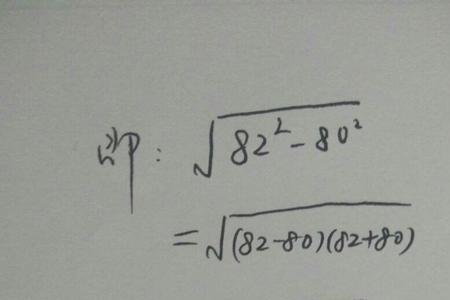 即: √(82² - 80²)
= √((82-80)(82+80))